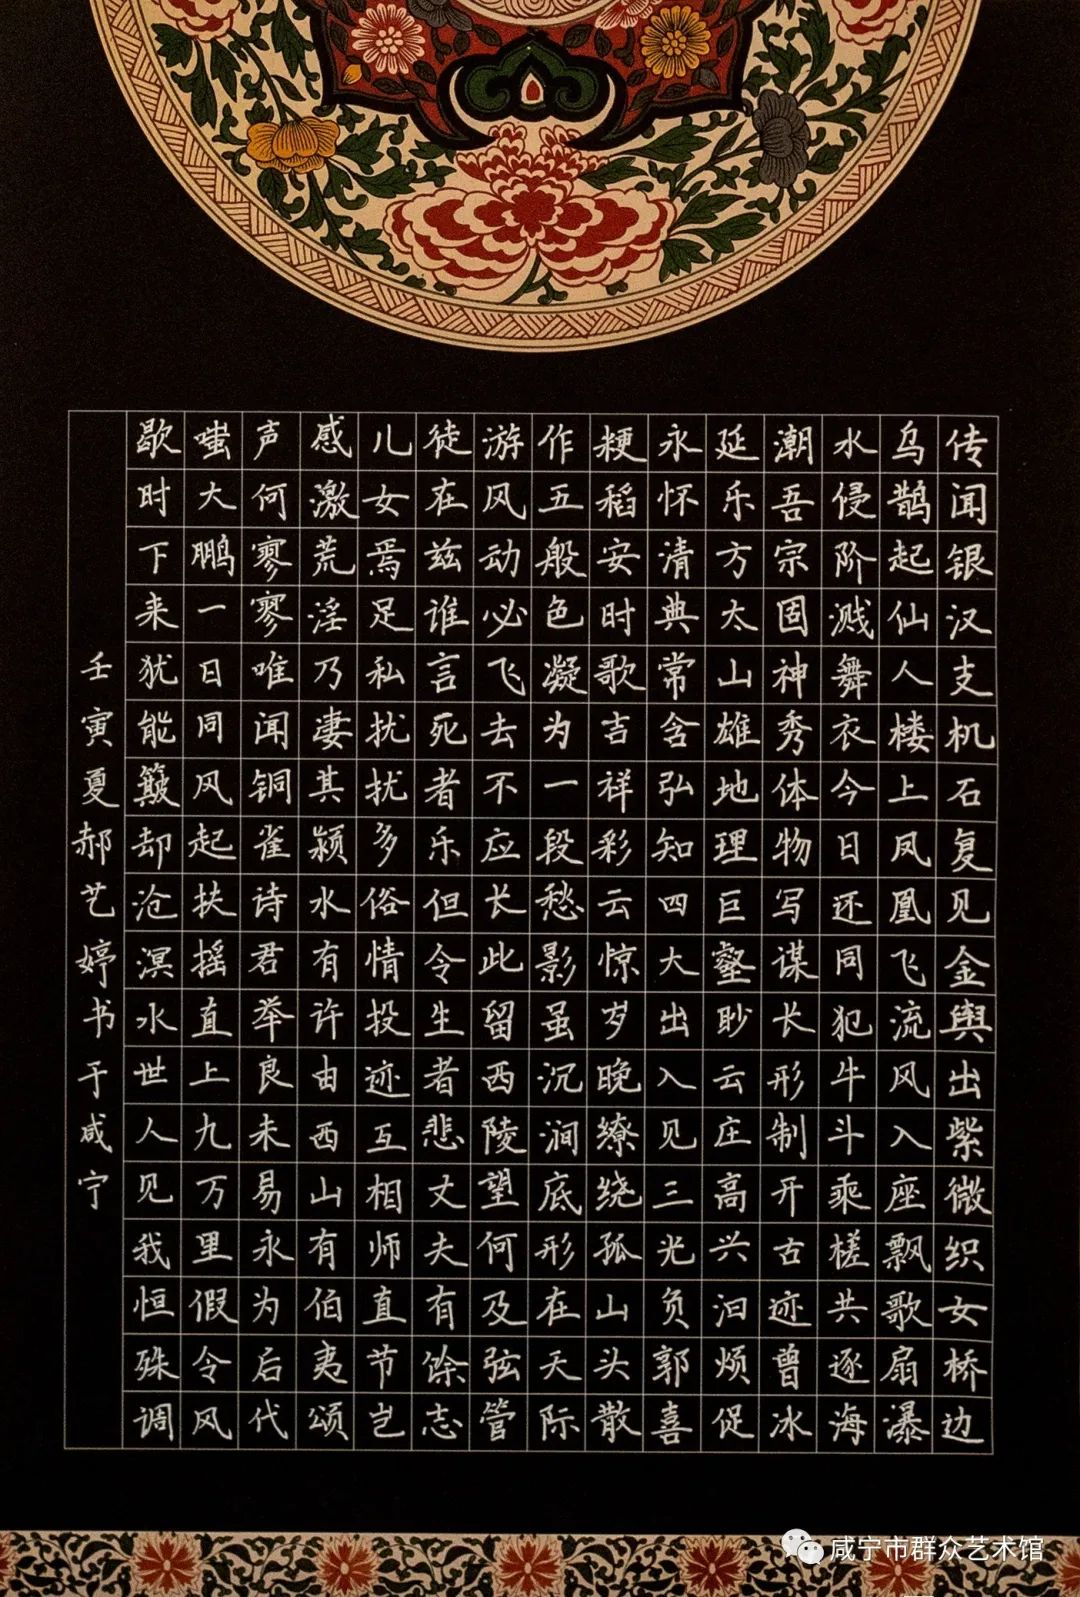 传闻银汉支机石复见金舆出紫微织女桥边
乌鹊起仙人楼上凤凰飞流风入座飘歌扇瀑
水侵阶溅舞衣今日还同犯牛斗乘槎共逐海
潮吾宗固神秀体物写谋长形制开古迹曾冰
延乐方太山雄地理巨壑眇云庄高兴汩烦促
永怀清典常含弘知四大出入见三光负郭喜
粳稻安时歌吉祥彩云惊岁晚缭绕孤山头散
作五般色凝为一段愁影虽沉涧底形在天际
游风动必飞去不应长此留西陵望何及弦管
徒在兹谁言死者乐但令生者悲丈夫有馀志
儿女焉足私扰扰多俗情投迹互相师直节岂
感激荒淫乃凄其颍水有许由西山有伯夷颂
声何寥寥唯闻铜雀诗君举良未易永为后代
嗤大鹏一日同风起扶摇直上九万里假令风
歇时下来犹能簸却沧溟水世人见我恒殊调
壬寅夏郝艺婷书于咸宁
咸宁市群众艺术馆